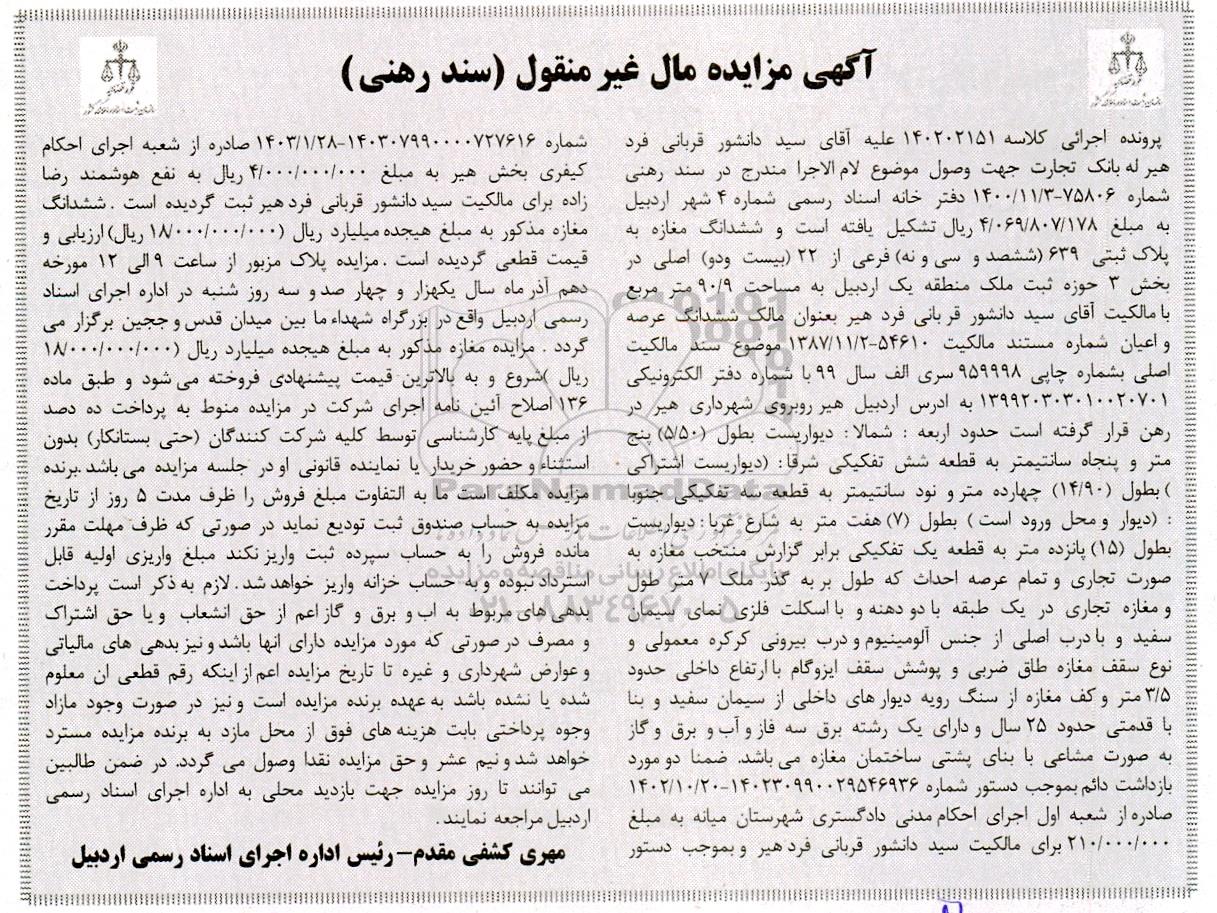 آگهی مزایده مال غیر منقول (سند رهنی)
پرونده اجرائی کلاسه ۱۴۰۲۰۲۱۵۱ علیه آقای سید دانشور قربانی فرد
هیر له بانک تجارت جهت وصول موضوع لام الاجرا مندرج در سند رهنی
شماره ۷۵۸۰۶-۱۴۰۰/۱۱/۳ دفتر خانه اسناد رسمی شماره ۴ شهر اردبیل
به مبلغ ۴/۰۶۹/۸۰۷/۱۷۸ ریال تشکیل یافته است و ششدانگ مغازه به
پلاک ثبتی ۶۳۹ (ششصد و سی و نه) فرعی از ۲۲ (بیست ودو) اصلی در
بخش ۳ حوزه ثبت ملک منطقه یک اردبیل به مساحت ۹۰/۹ متر مربع
با مالکیت آقای سید دانشور قربانی فرد هیر بعنوان مالک ششدانگ عرصه
و اعیان شماره مستند مالکیت ۵۴۶۱۰-۱۳۸۷/۱۱/۲ موضوع سند مالکیت
اصلی بشماره چاپی ۹۵۹۹۹۸ سری الف سال ۹۹ با شماره دفتر الکترونیکی
۱۳۹۹۲۰۳۰۳۰۱۰۰۲۰۷۰۱ به ادرس اردبیل هیر روبروی شهرداری هیر در
رهن قرار گرفته است حدود اربعه : شمالا: دیواریست بطول (۵/۵۰) پنج
متر و پنجاه سانتیمتر به قطعه شش تفکیکی شرقا: (دیواریست اشتراکی
) بطول (۱۴/۹۰) چهارده متر و نود سانتیمتر به قطعه سه تفکیکی جنوبا
: (دیوار و محل ورود است ) بطول (۷) هفت متر به شارع غربا: دیواریست
بطول (۱۵) پانزده متر به قطعه یک تفکیکی برابر گزارش منتخب مغازه به
صورت تجاری و تمام عرصه احداث که طول بر به گذر ملک ۷ متر طول
و مغازه تجاری در یک طبقه با دو دهنه و با اسکلت فلزی نمای سیمان
سفید و با درب اصلی از جنس آلومینیوم و درب بیرونی کرکره معمولی و
نوع سقف مغازه طاق ضربی و پوشش سقف ایزوگام با ارتفاع داخلی حدود
۳/۵ متر و کف مغازه از سنگ رویه دیوار های داخلی از سیمان سفید و بنا
با قدمتی حدود ۲۵ سال و دارای یک رشته برق سه فاز و آب و برق و گاز
به صورت مشاعی با بنای پشتی ساختمان مغازه می باشد. ضمنا دو مورد
بازداشت دائم بموجب دستور شماره ۱۴۰۲۳۰۹۹۰۰۲۹۵۴۶۹۳۶-۱۴۰۲/۱۰/۲۰
صادره از شعبه اول اجرای احکام مدنی دادگستری شهرستان میانه به مبلغ
۲۱۰/۰۰۰/۰۰۰ برای مالکیت سید دانشور قربانی فرد هیر و بموجب دستور
شماره ۱۴۰۳۰۷۹۹۰۰۰۰۷۲۷۶۱۶-۱۴۰۳/۱/۲۸ صادره از شعبه اجرای احکام
کیفری بخش هیر به مبلغ ۴/۰۰۰/۰۰۰/۰۰۰ ریال به نفع هوشمند رضا
زاده برای مالکیت سید دانشور قربانی فرد هیر ثبت گردیده است . ششدانگ
مغازه مذکور به مبلغ هیجده میلیارد ریال (۱۸/۰۰۰/۰۰۰/۰۰۰ ریال) ارزیابی و
قیمت قطعی گردیده است . مزایده پلاک مزبور از ساعت ۹ الی ۱۲ مورخه
دهم آذر ماه سال یکهزار و چهار صد و سه روز شنبه در اداره اجرای اسناد
رسمی اردبیل واقع در بزرگراه شهداء ما بین میدان قدس و ججین برگزار می
گردد . مزایده مغازه مذکور به مبلغ هیجده میلیارد ریال (۱۸/۰۰۰/۰۰۰/۰۰۰
ریال )شروع و به بالاترین قیمت پیشنهادی فروخته می شود و طبق ماده
۱۳۶ اصلاح آئین نامه اجرای شرکت در مزایده منوط به پرداخت ده دصد
از مبلغ پایه کارشناسی توسط کلیه شرکت کنندگان (حتی بستانکار) بدون
استثناء و حضور خریدار یا نماینده قانونی او در جلسه مزایده می باشد .برنده
مزایده مکلف است ما به التفاوت مبلغ فروش را ظرف مدت ۵ روز از تاریخ
مزایده به حساب صندوق ثبت تودیع نماید در صورتی که ظرف مهلت مقرر
مانده فروش را به حساب سپرده ثبت واریز نکند مبلغ واریزی اولیه قابل
استرداد نبوده و به حساب خزانه واریز خواهد شد . لازم به ذکر است پرداخت
بدهی های مربوط به اب و برق و گاز اعم از حق انشعاب و یا حق اشتراک
و مصرف در صورتی که مورد مزایده دارای انها باشد و نیز بدهی های مالیاتی
و عوارض شهرداری و غیره تا تاریخ مزایده اعم از اینکه رقم قطعی ان معلوم
شده یا نشده باشد به عهده برنده مزایده است و نیز در صورت وجود مازاد
وجوه پرداختی بابت هزینه های فوق از محل مازد به برنده مزایده مسترد
خواهد شد و نیم عشر و حق مزایده نقدا وصول می گردد. در ضمن طالبین
می توانند تا روز مزایده جهت بازدید محلی به اداره اجرای اسناد رسمی
اردبیل مراجعه نمایند .
مهری کشفی مقدم- رئیس اداره اجرای اسناد رسمی اردبیل
ParsNamadData
پایگاه اطلاع رسانی مناقصه و مزایده